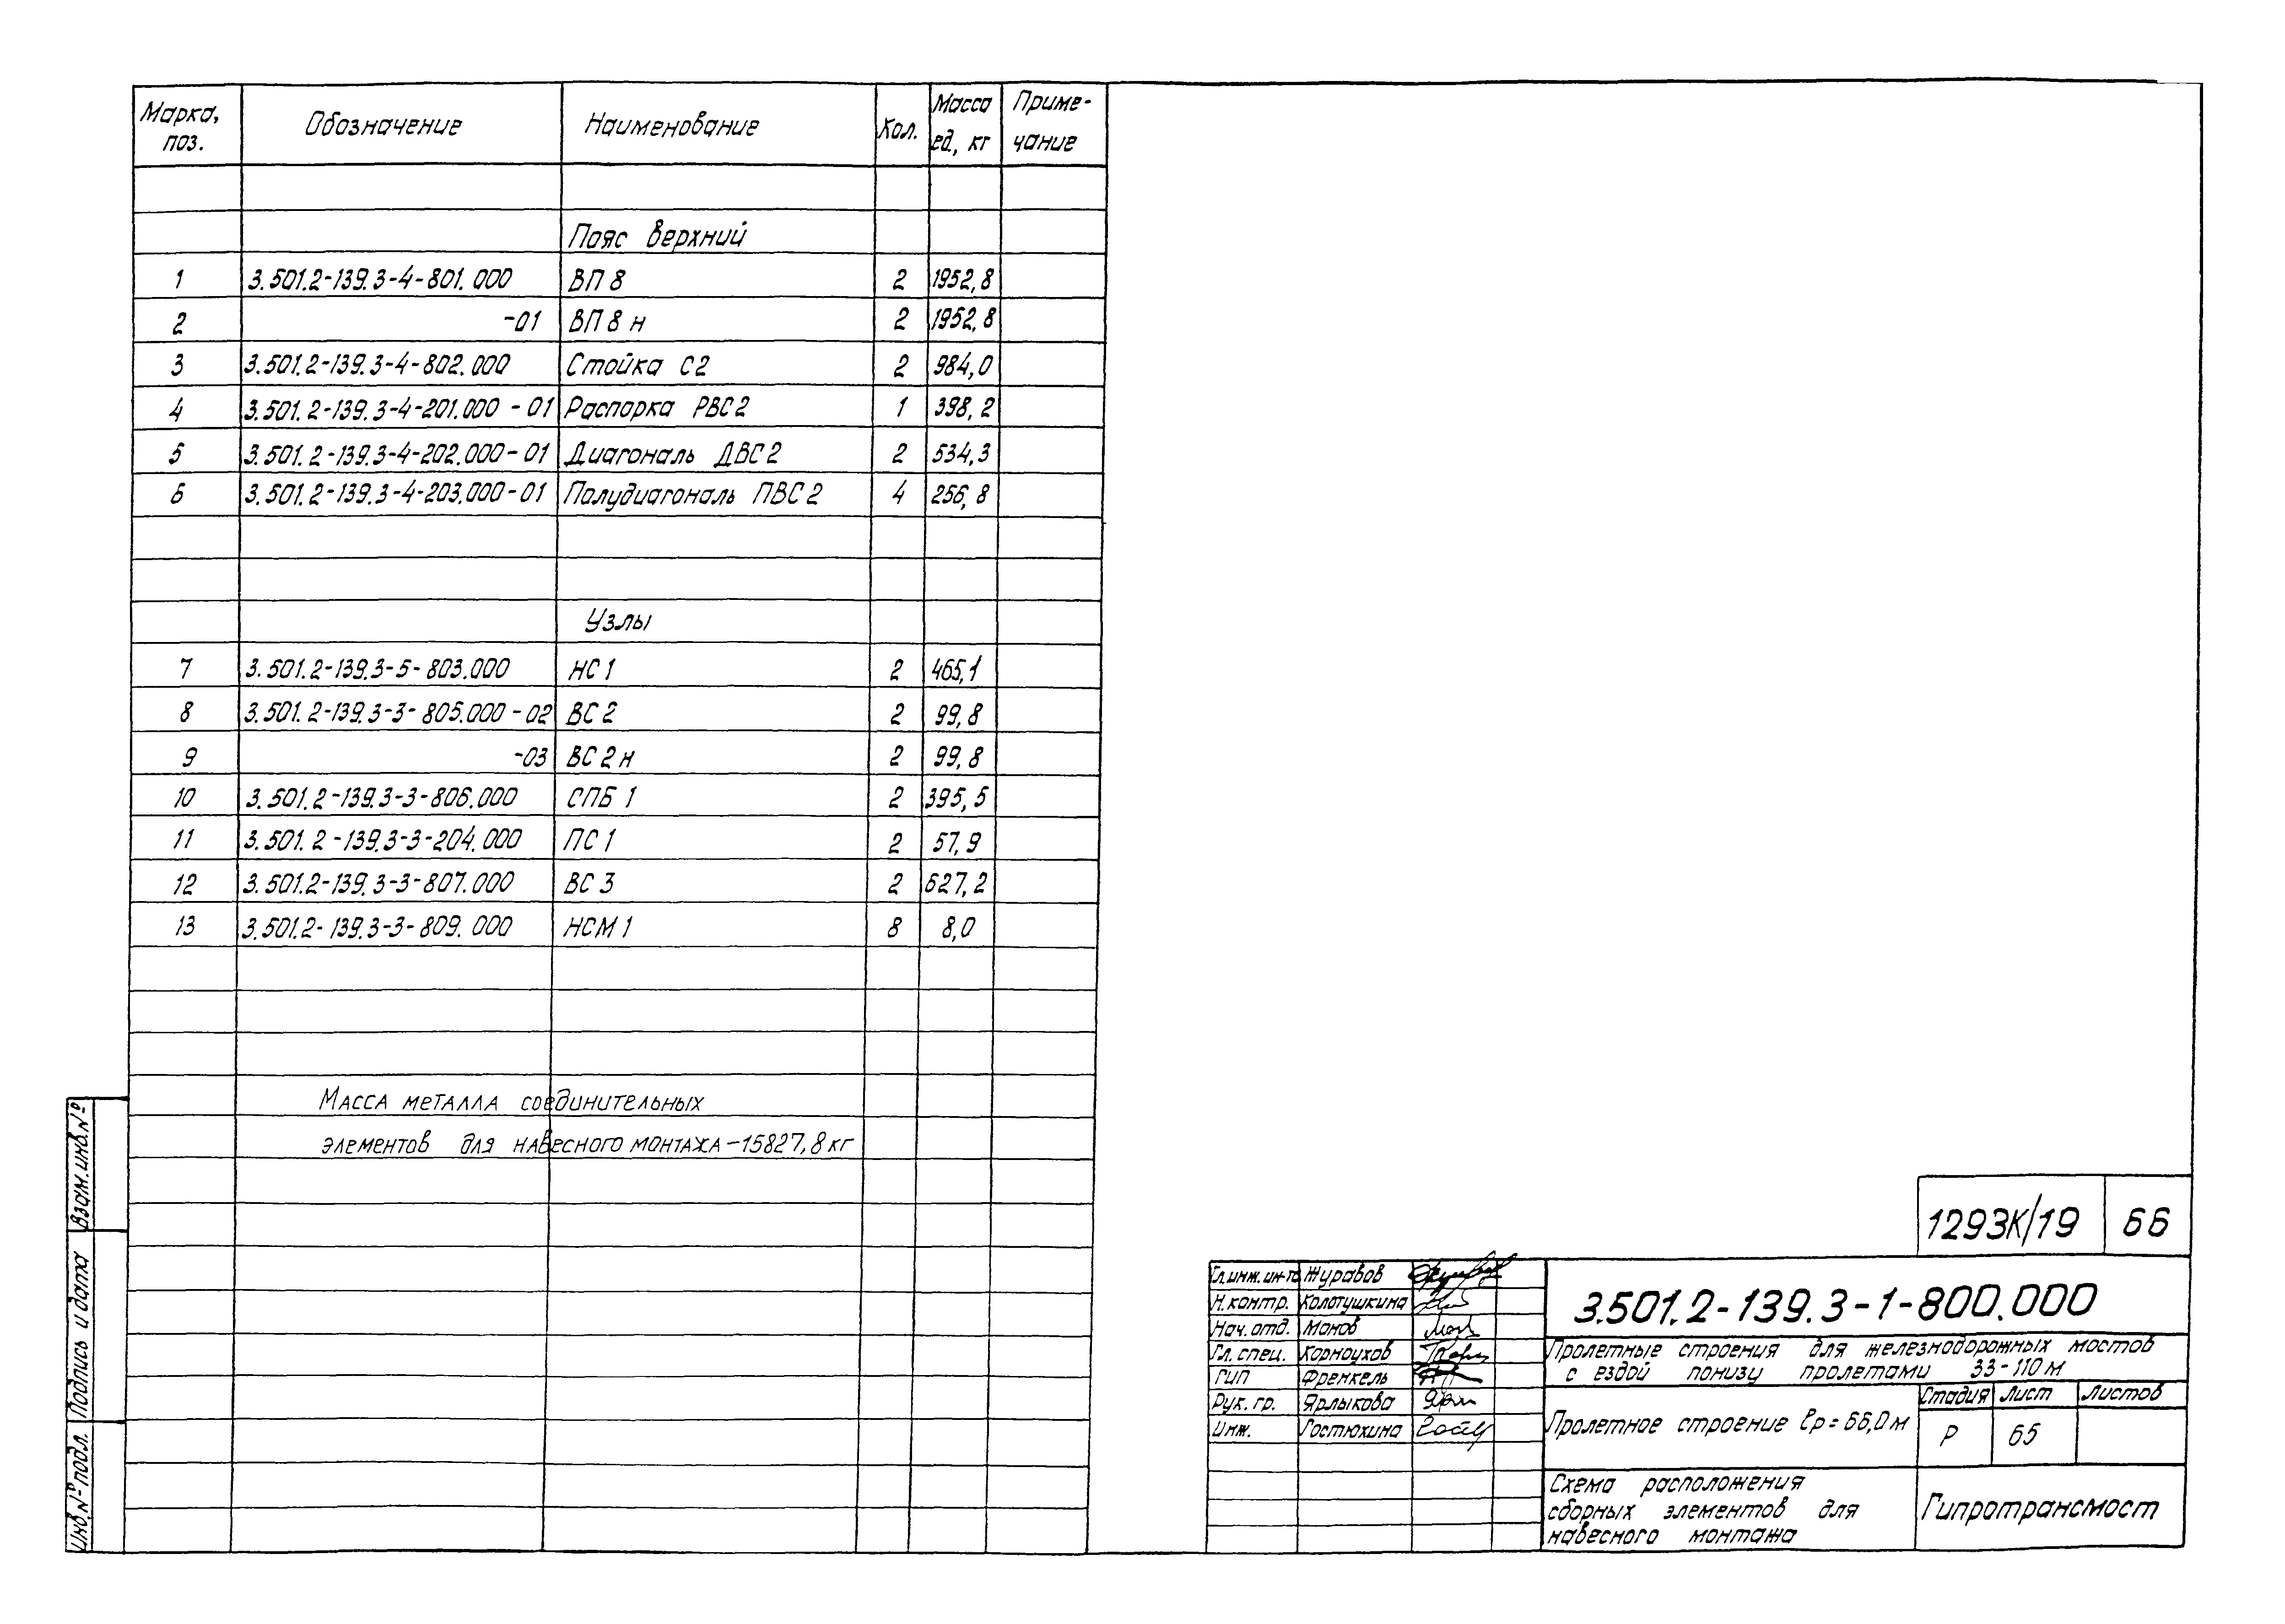 Марка, поз. Обозначение Наименование Кол. Масса ед., кг Примечание
Пояс верхний
1 3.501.2-139.3-4-801.000 ВП 8 2 1952,8
2 -01 ВП 8 н 2 1952,8
3 3.501.2-139.3-4-802.000 Стойка С2 2 984,0
4 3.501.2-139.3-4-201.000-01 Распорка РВС2 1 398,2
5 3.501.2-139.3-4-202.000-01 Диагональ ДВС2 2 534,3
6 3.501.2-139.3-4-203.000-01 Полудиагональ ПВС2 4 256,8
Узлы
7 3.501.2-139.3-5-803.000 НС1 2 465,1
8 3.501.2-139.3-3-805.000-02 ВС2 2 99,8
9 -03 ВС2н 2 99,8
10 3.501.2-139.3-3-806.000 СПБ1 2 395,5
11 3.501.2-139.3-3-204.000 ПС1 2 57,9
12 3.501.2-139.3-3-807.000 ВС3 2 627,2
13 3.501.2-139.3-3-809.000 НСМ1 8 8,0
Масса металла соединительных
элементов для навесного монтажа-15827,8кг
Взам.инв.№
Подпись и дата
Инв.№ подл.
1293К/19 66
Гл.инж.ин-та Журавов
Н.контр. Колотушкина
Нач.отд. Монов
Гл.спец. Корноухов
ГИП Френкель
Рук.гр. Ярлыкова
Инж. Гостюхина
3.501.2-139.3-1-800.000
Пролетные строения для железнодорожных мостов
с ездой понизу пролетами 33-110м
Пролетное строение lр=66,0м
Стадия Лист Листов
Р 65
Схема расположения
сборных элементов для
навесного монтажа
Гипротрансмост